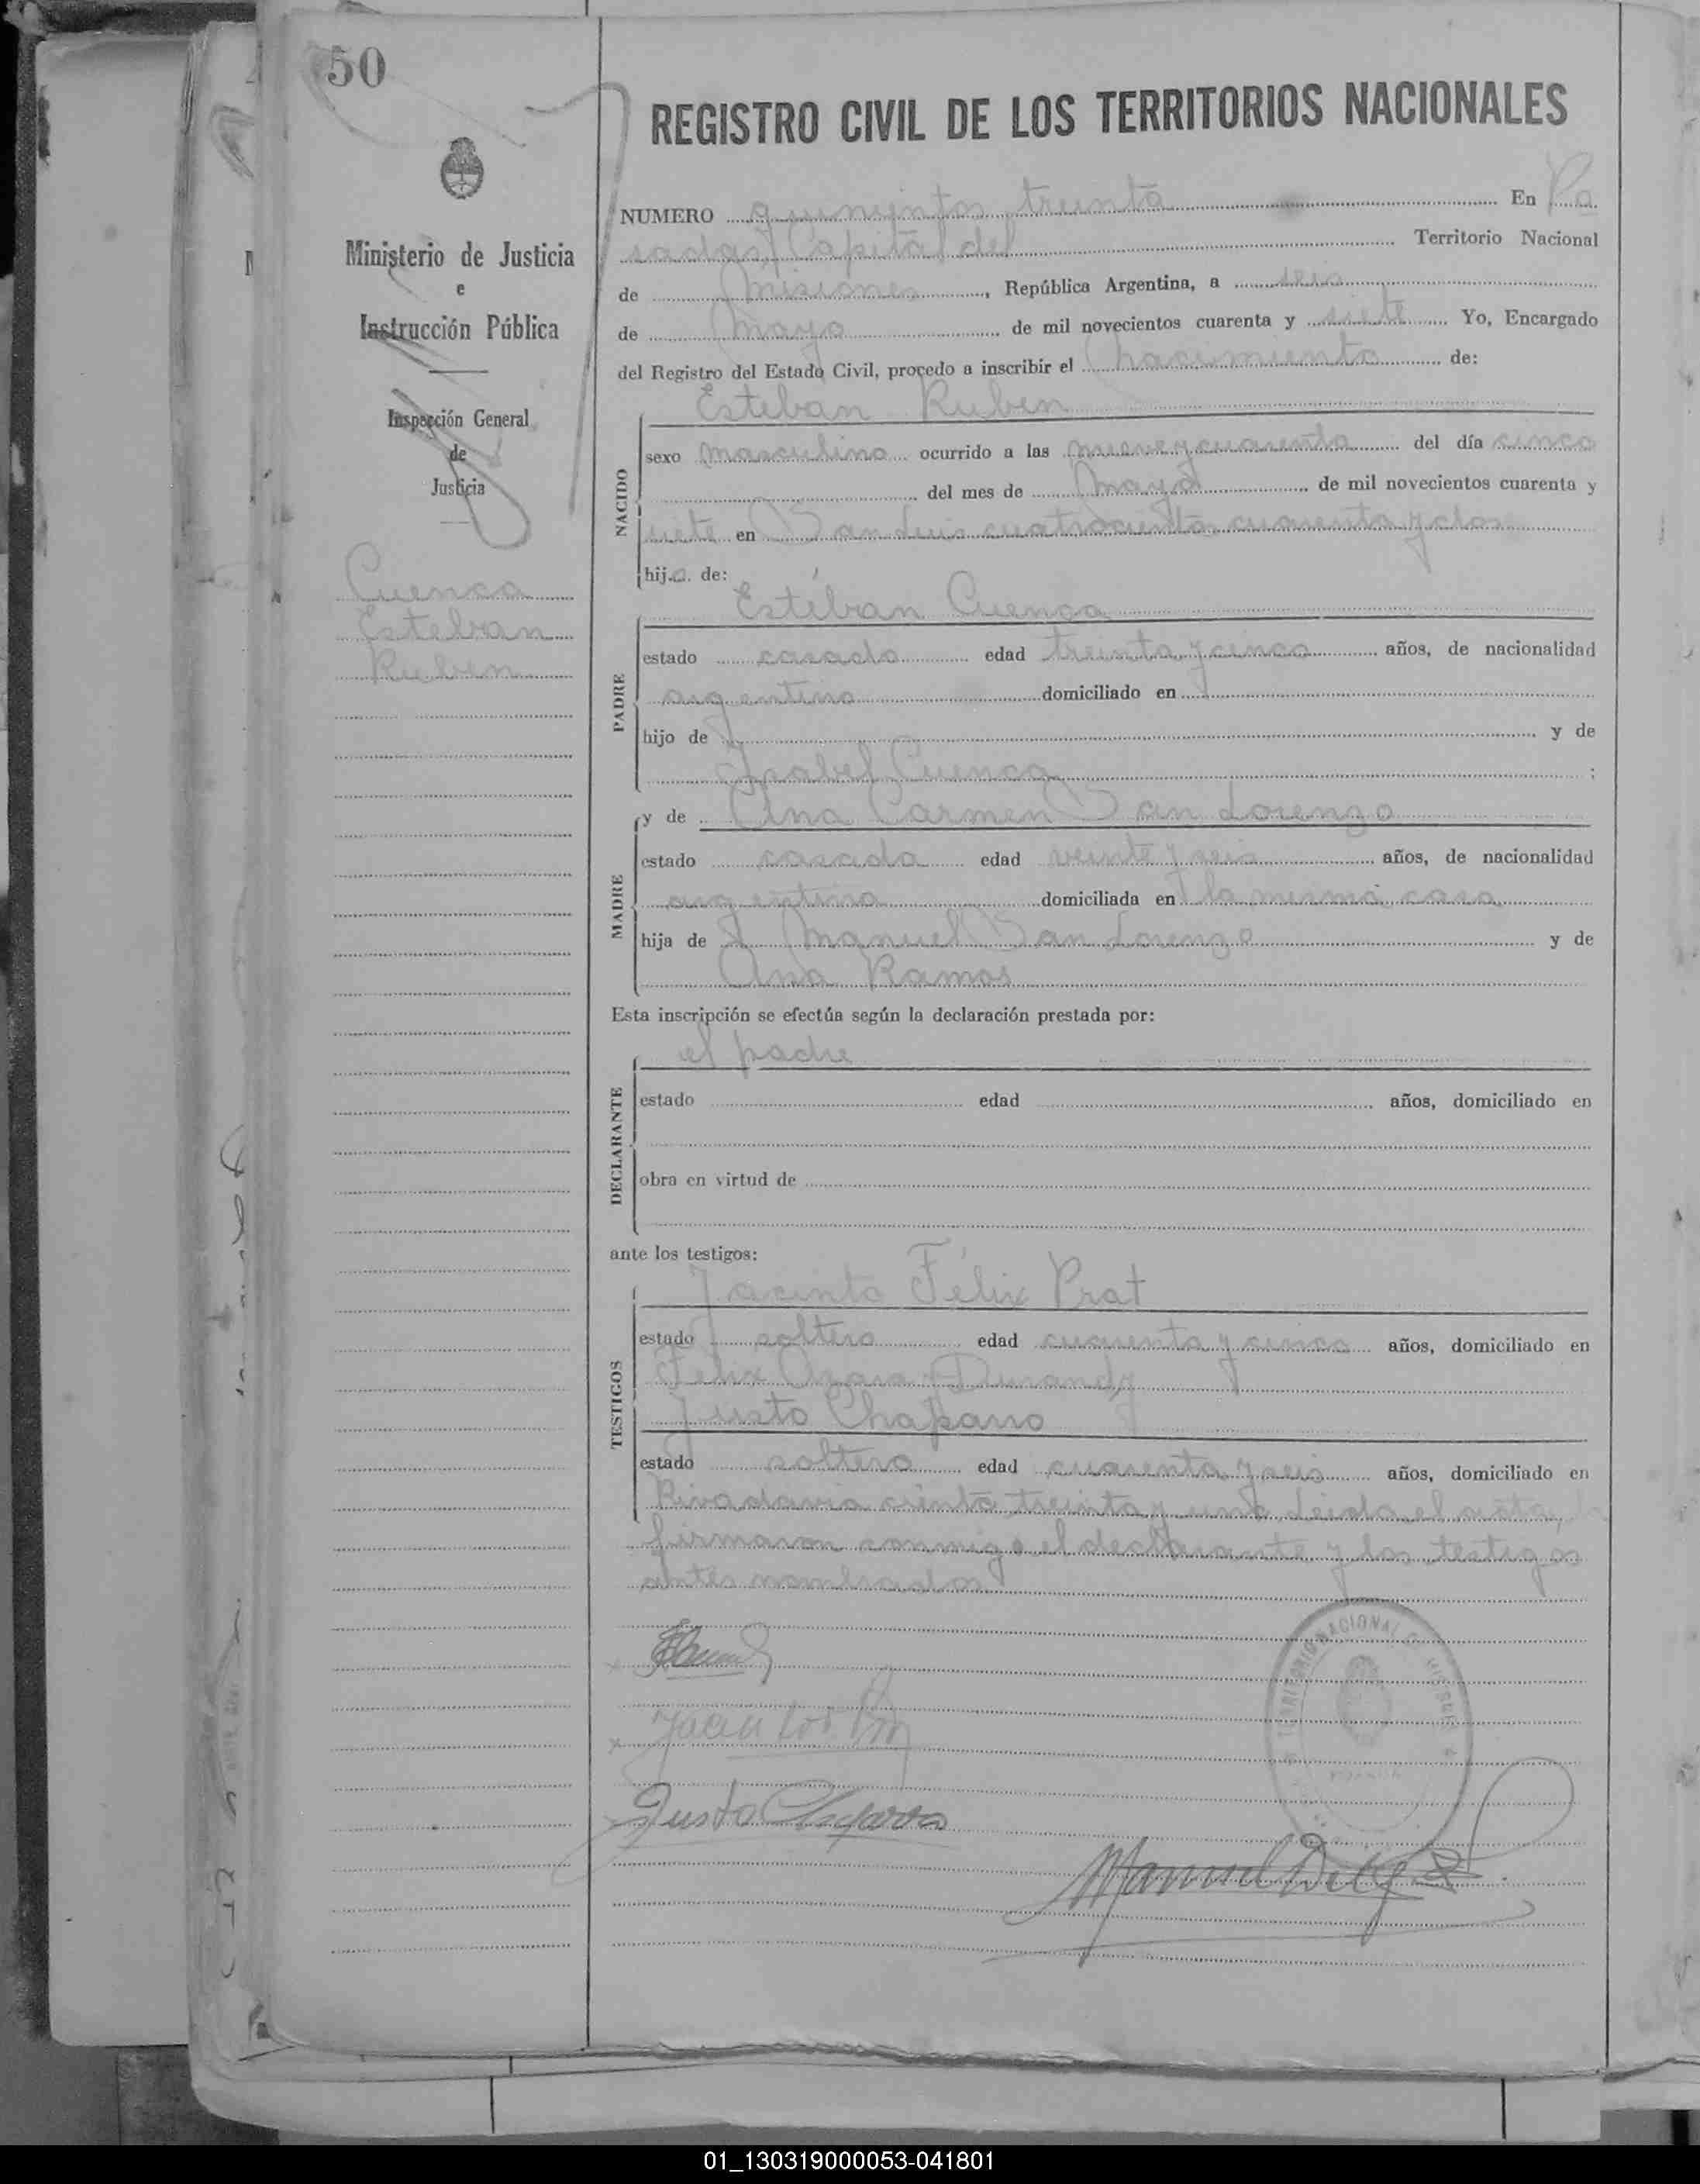 50
REGISTRO CIVIL DE LOS TERRITORIOS NACIONALES
Ministerio de Justicia
e
Instrucción Pública
Inspección General
de
Justicia
Cuenca
Esteban
Ruben
NUMERO quinientos treinta En Po
sadas, Capital del Territorio Nacional
de Misiones, República Argentina, a seis
de Mayo de mil novecientos cuarenta y siete Yo, Encargado
del Registro del Estado Civil, procedo a inscribir el nacimiento de:
Esteban Ruben
NACIDO
sexo masculino ocurrido a las nueve y cuarenta del día cinco
del mes de Mayo de mil novecientos cuarenta y
siete en San Luis cuatrocientos cuarenta y dos
hijo de:
Estéban Cuenca
PADRE
estado casado edad treinta y cinco años, de nacionalidad
argentino domiciliado en
hijo de y de
Isabel Cuenca ;
y de Ana Carmen San Lorenzo
MADRE
estado casada edad veinte y seis años, de nacionalidad
argentina domiciliada en la misma casa
hija de Manuel San Lorenzo y de
Ana Ramos
Esta inscripción se efectúa según la declaración prestada por:
el padre
DECLARANTE
estado edad años, domiciliado en
obra en virtud de
ante los testigos:
Jacinto Félix Prat
TESTIGOS
estado soltero edad cuarenta y cinco años, domiciliado en
Félix Azara
Justo Chaparro
estado soltero edad cuarenta y seis años, domiciliado en
Rivadavia ciento treinta y uno. Leida el acta,
firmaron conmigo el declarante y los testigos
antes nombrados
TERRITORIO NACIONAL DE MISIONES
Justo Chaparro
Manuel
01_130319000053-041801